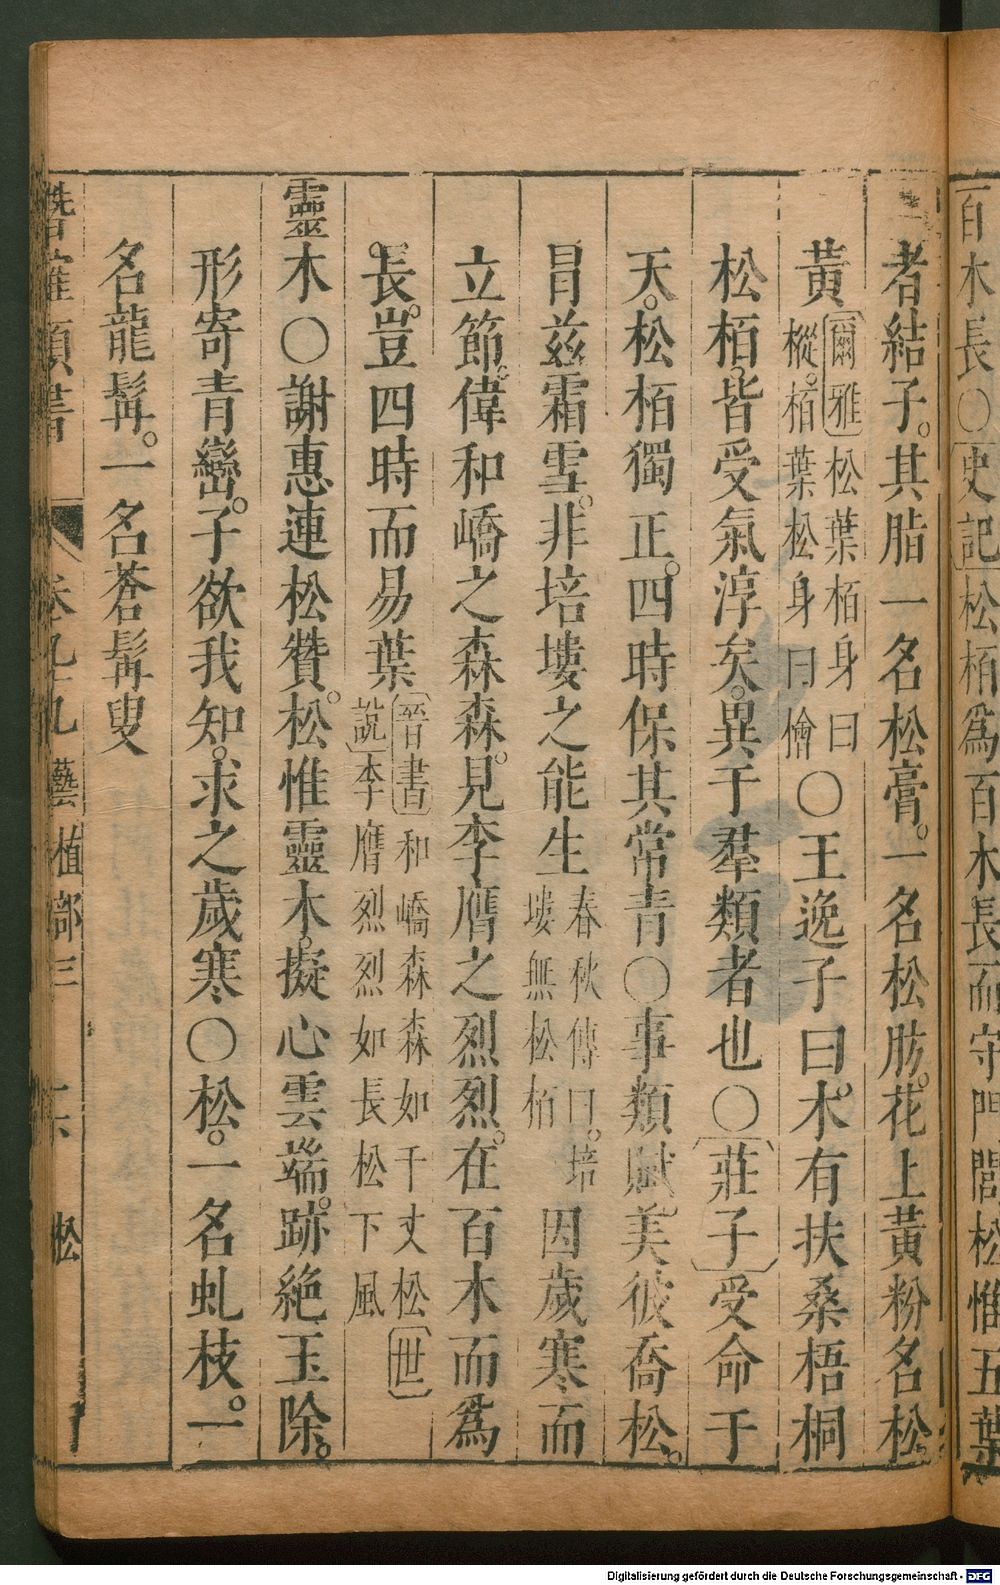 百木長○史記松栢爲百木長而守門閭松惟五葉
者結子。其脂一名松膏。一名松肪。花上黃粉名松
黃爾雅松葉栢身曰樅。栢葉松身曰檜○王逸子曰。木有扶桑梧桐
松栢。皆受氣淳矣。異于羣類者也○莊子受命于
天。松栢獨正。四時保其常青○事類賦。美彼喬松。
冒茲霜雪。非培塿之能生春秋傳曰。培塿無松栢因歲寒而
立節。偉和嶠之森森。見李膺之烈烈。在百木而爲
長。豈四時而易葉晉書和嶠森森如千丈松世說李膺烈烈如長松下風
靈木○謝惠連松贊。松惟靈木。擬心雲端。跡絕玉除。
形寄青巒。子欲我知。求之歲寒○松。一名虬枝。一
名龍髯。一名蒼髯叟
潛確類書 卷九九 藝植部三 松
Digitalisierung gefördert durch die Deutsche Forschungsgemeinschaft - DFG